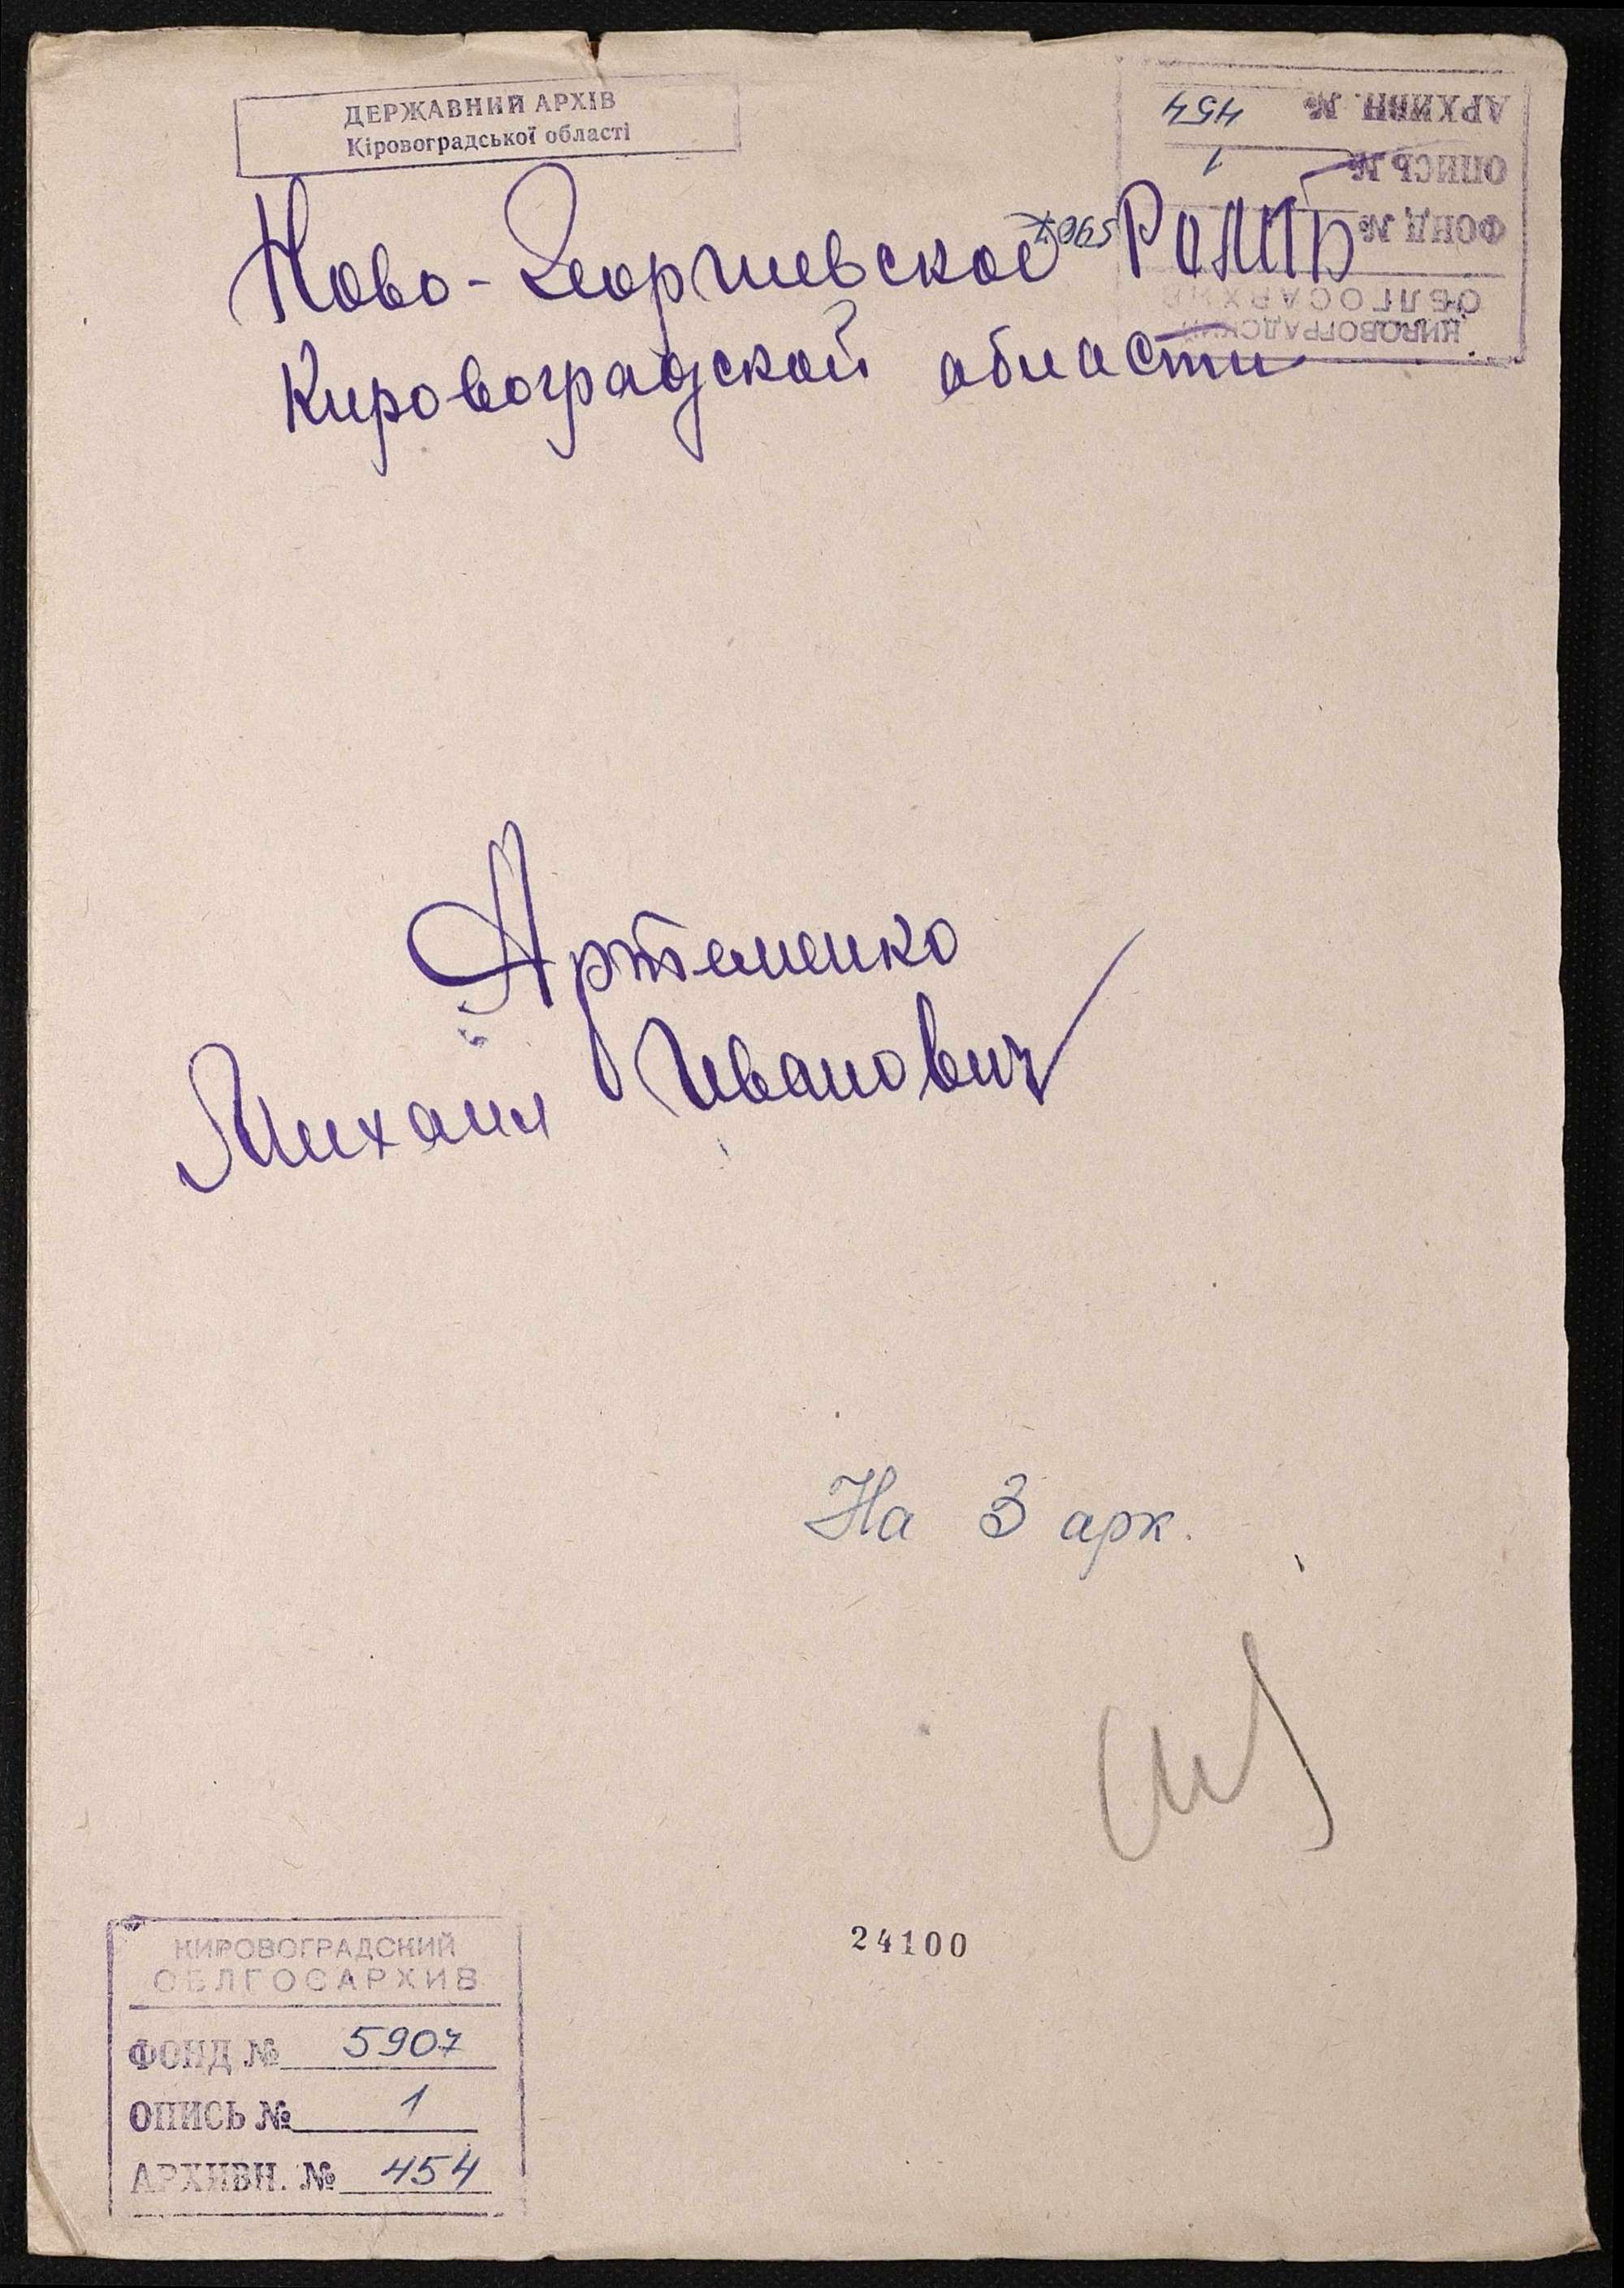 ДЕРЖАВНИЙ АРХІВ
Кіровоградської області
АРХИВН. № 454
ОПИСЬ № 1
ФОНД № 5907
ОБЛГОСАРХИВ
КИРОВОГРАДСКИЙ
Ново-Георгиевское РОМГБ
Кировоградской области
Артеменко
Михаил Иванович
На 3 арк.
24100
КИРОВОГРАДСКИЙ
ОБЛГОСАРХИВ
ФОНД № 5907
ОПИСЬ № 1
АРХИВН. № 454